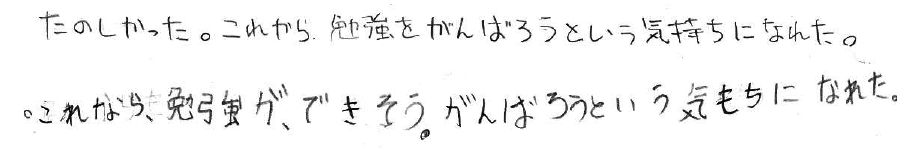 たのしかった。これから勉強をがんばろうという気持ちになれた。
。これなら、勉強が、できそう。がんばろうという気もちになれた。